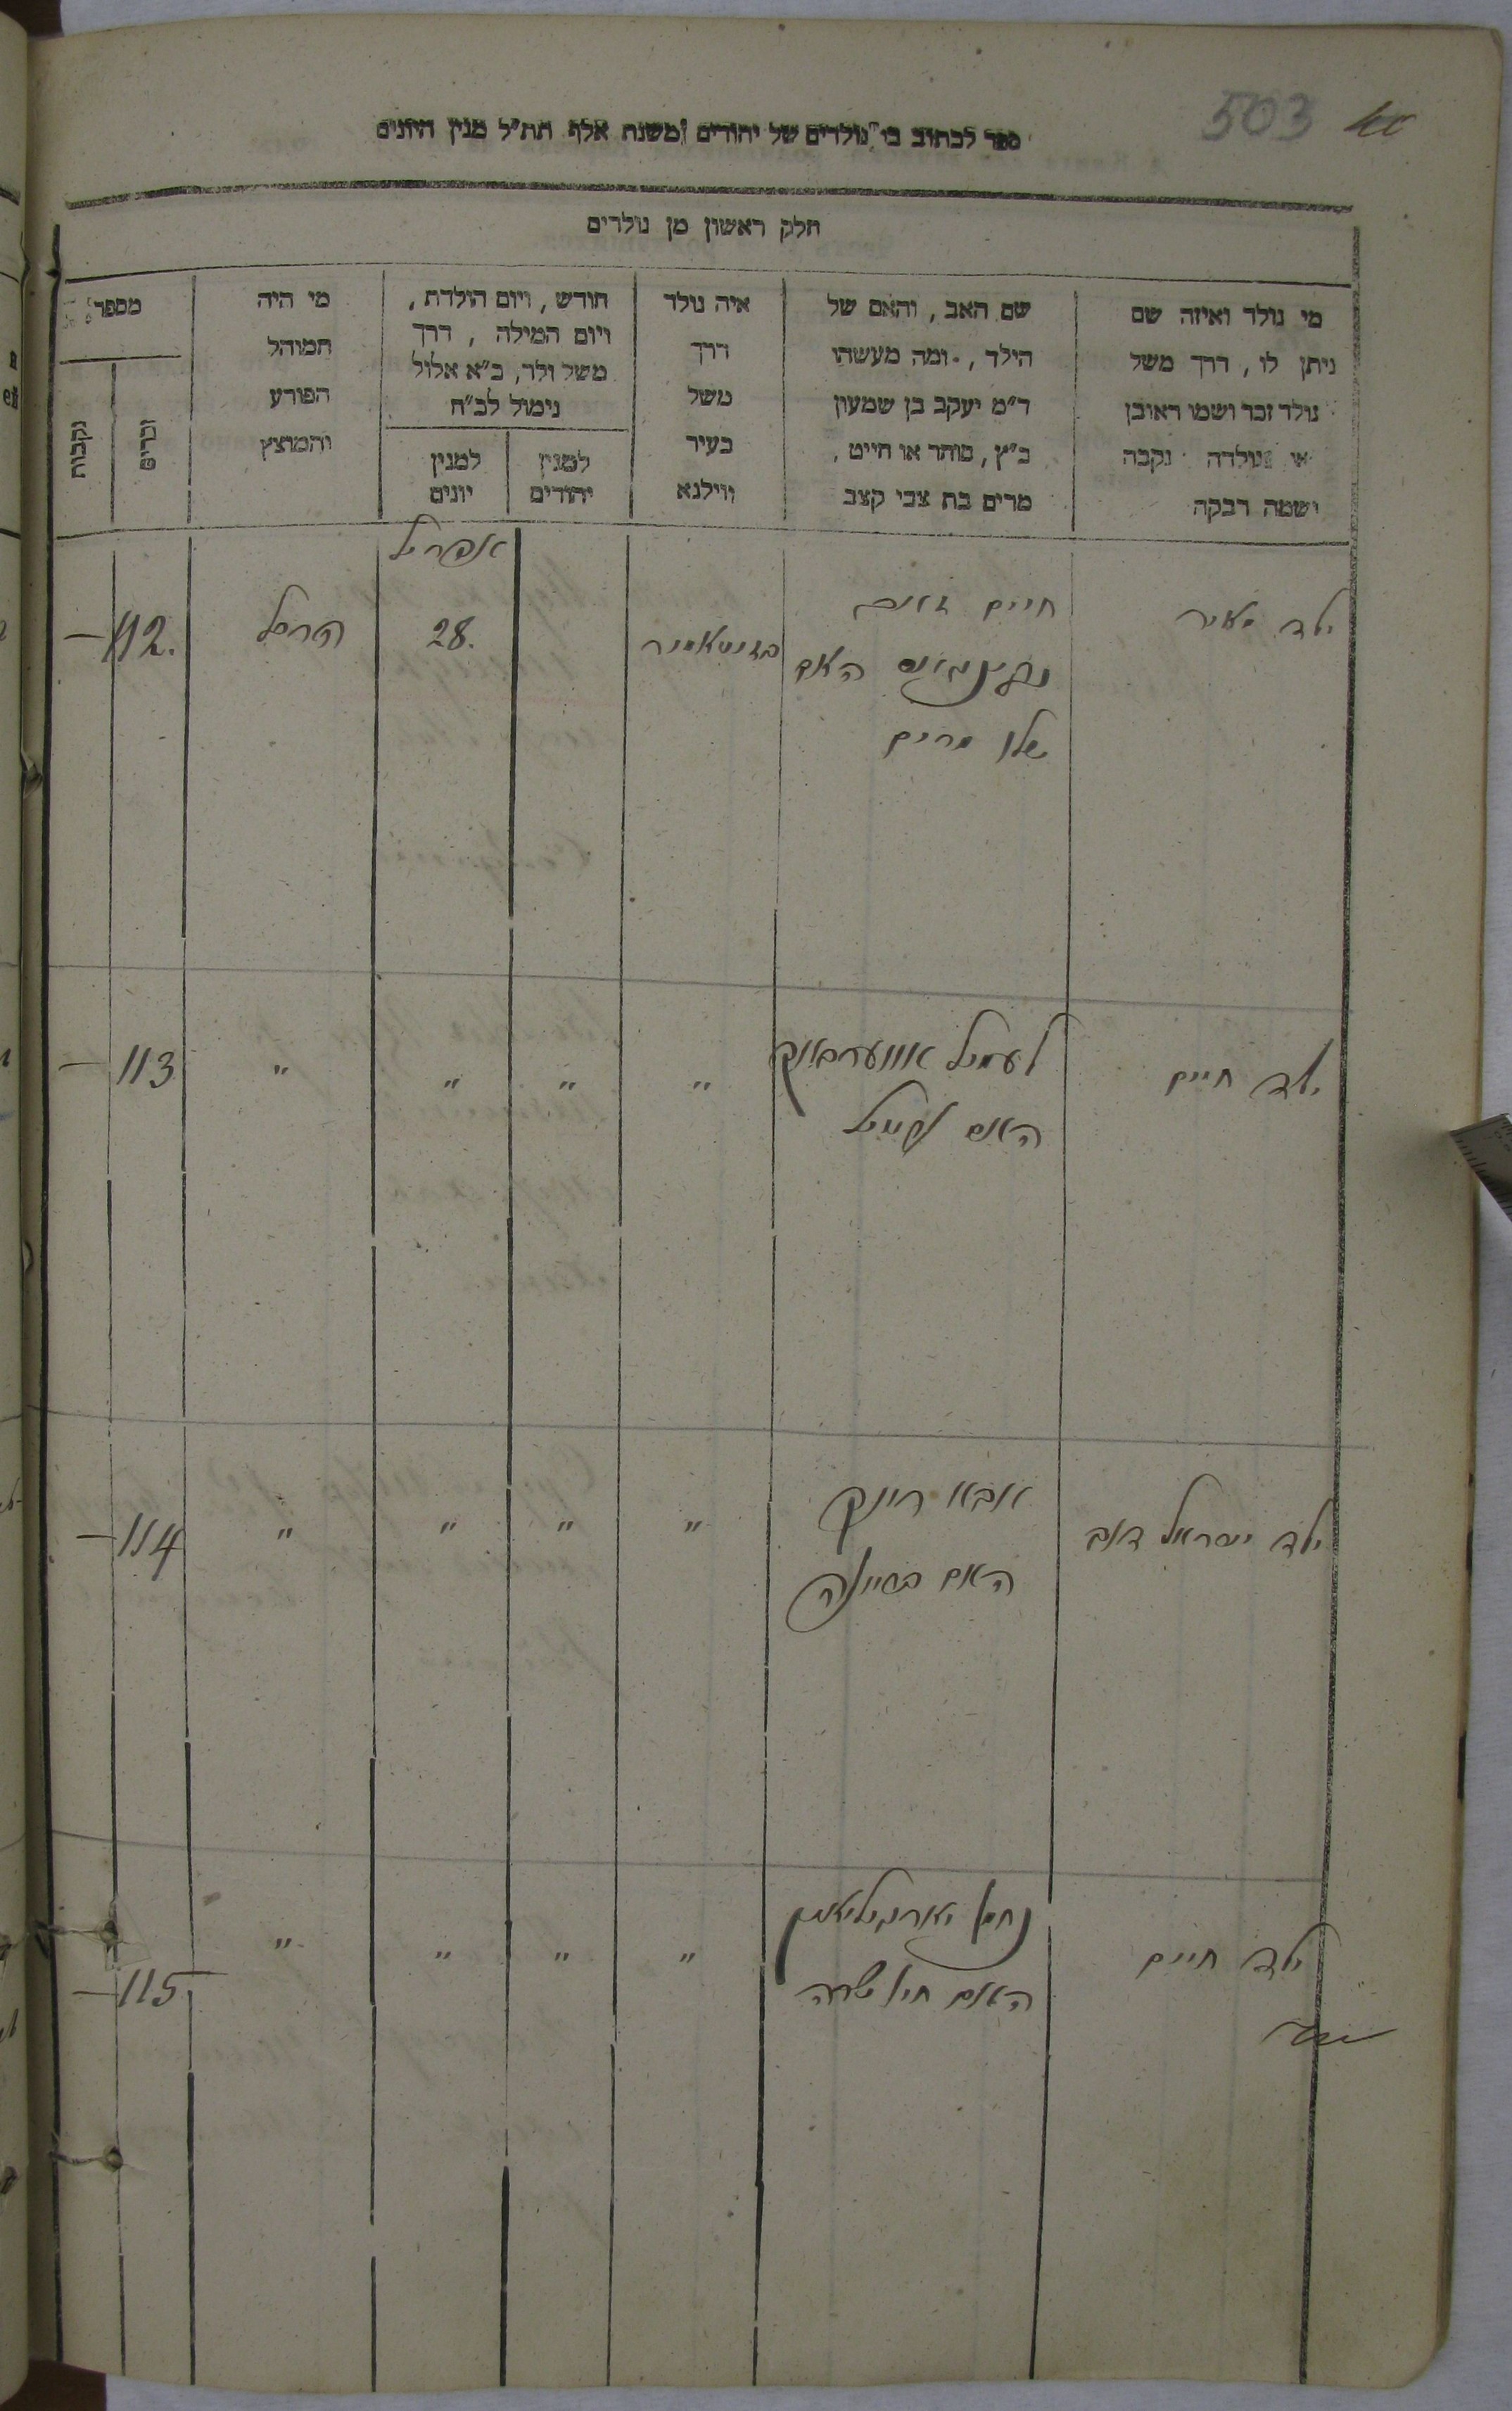 503
ספר לכתוב בו נולדים של יהודים משנת אלף תת"ל מנין היונים
חלק ראשון מן נולדים
מי נולד ואיזה שם
ניתן לו, דרך משל
נולד זכר ושמו ראובן
או נולדה נקבה
ושמה רבקה
שם האב, והאם של
הילד, ומה מעשהו
ד"מ יעקב בן שמעון
כ"ץ, סוחר או חייט,
מרים בת צבי קצב
איה נולד
דרך
משל
בעיר
ווילנא
חודש, ויום הולדת,
ויום המילה, דרך
משל ולד, כ"א אלול
נימול לכ"ח
למנין
יהודים
למנין
יונים
מי היה
המוהל
הפורע
והמוצץ
מספר
זכרים
נקבות
אפריל
ילד מאיר
חיים
האם
שלו מרים
28.
112. —
ילד חיים
לעמיל
האם
" " " "
113 —
ילד ישראל דוב
אבא רינק
האם בריינה
" " " "
114 —
ילד חיים
נחמן
האם חי' שרה
" " " "
115 —